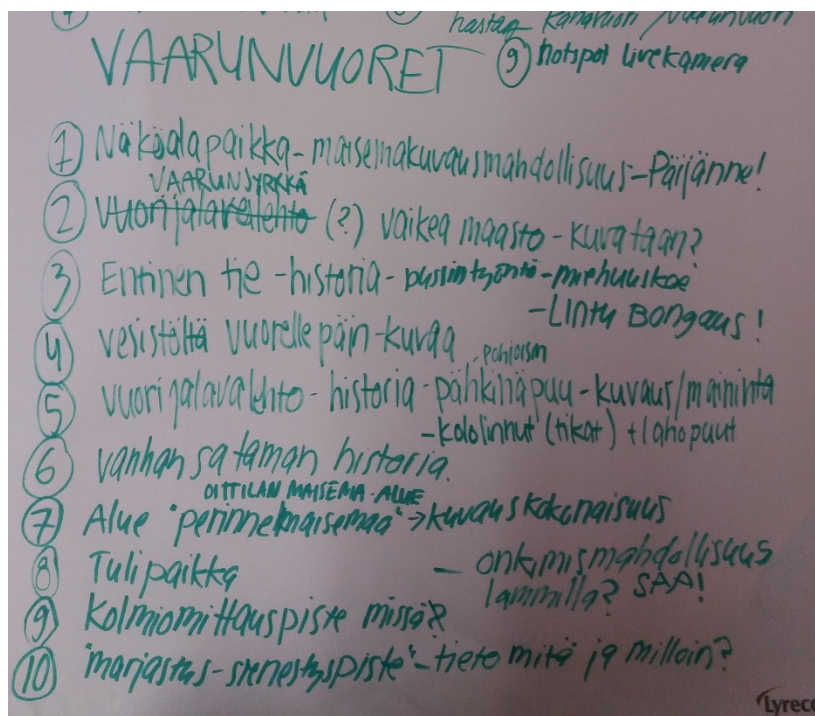 hastag Kanavuori / Vaarunvuori
VAARUNVUORET
9 hotspot livekamera
1 Näköalapaikka - maisemakuvausmahdollisuus - Päijänne!
VAARUNJYRKKÄ
2 vuorijalavalehto (?) vaikea maasto - kuvataan?
3 Entinen tie - historia - pussintyöntö - miehuuskoe
- Lintu Bongaus!
4 vesistöltä vuorellepäin - kuvaa
pohjoisin
5 vuorijalavalehto - historia - pähkinäpuu - kuvaus/maininta
- kololinnut (tikat) + lahopuut
6 vanhan sataman historia.
OITTILAN MAISEMA-ALUE
7 Alue "perinnemaisemaa" → kuvauskokonaisuus
8 Tulipaikka - onkimismahdollisuus
lammilla? SAA!
9 Kolmiomittauspiste missä?
10 "marjastus-sienestyspiste" - tieto mitä ja milloin?
Lyreco